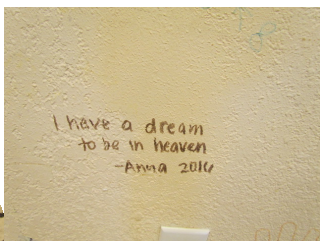 I have a dream
to be in heaven
-Anna 2016